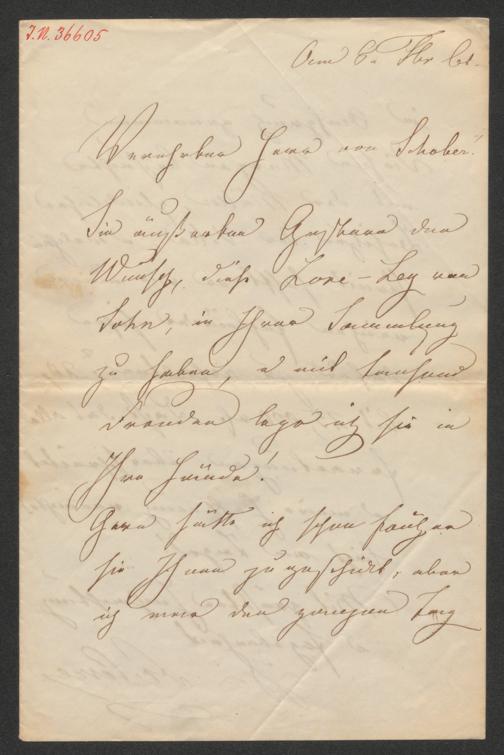 I.N. 36605
Am 6.
Verehrter Herr von Schober!
Sie äußerten Gestern den
Wunsch, diese Lore-Ley von
Sohn, in Ihrer Sammlung
zu haben, u mit tausend
Freuden lege ich sie in
Ihre Hände!
Gern hätte ich schon früher
sie Ihnen zugeschickt, aber
ich war den ganzen Tag